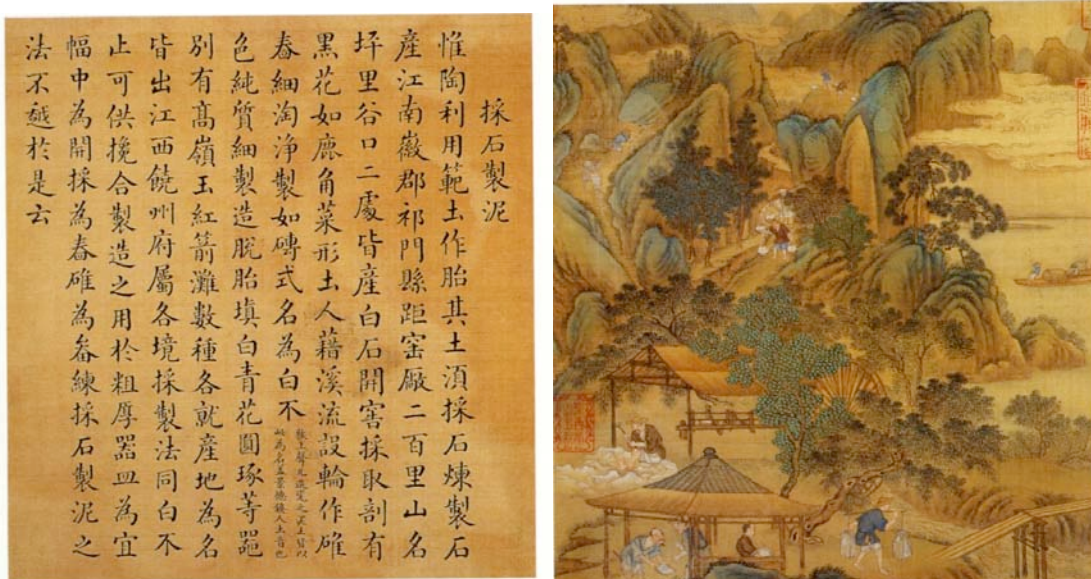 採石製泥
惟陶利用範土作胎其土湏採石煉製石
產江南徽郡祁門縣距窑廠二百里山名
坪里谷口二處皆產白石開窖採取剖有
黑花如鹿角菜形土人藉溪流設輪作碓
舂細淘淨製如磚式名為白不
上聲凡造之泥土皆以
為名盖景德鎮人土音也
色純質細製造脫胎填白青花圓琢等器
別有髙嶺玉紅箭灘數種各就產地為名
皆出江西饒州府屬各境採製法同白不
止可供攙合製造之用於粗厚器皿為宜
幅中為開採為舂碓為畚練採石製泥之
法不越於是云